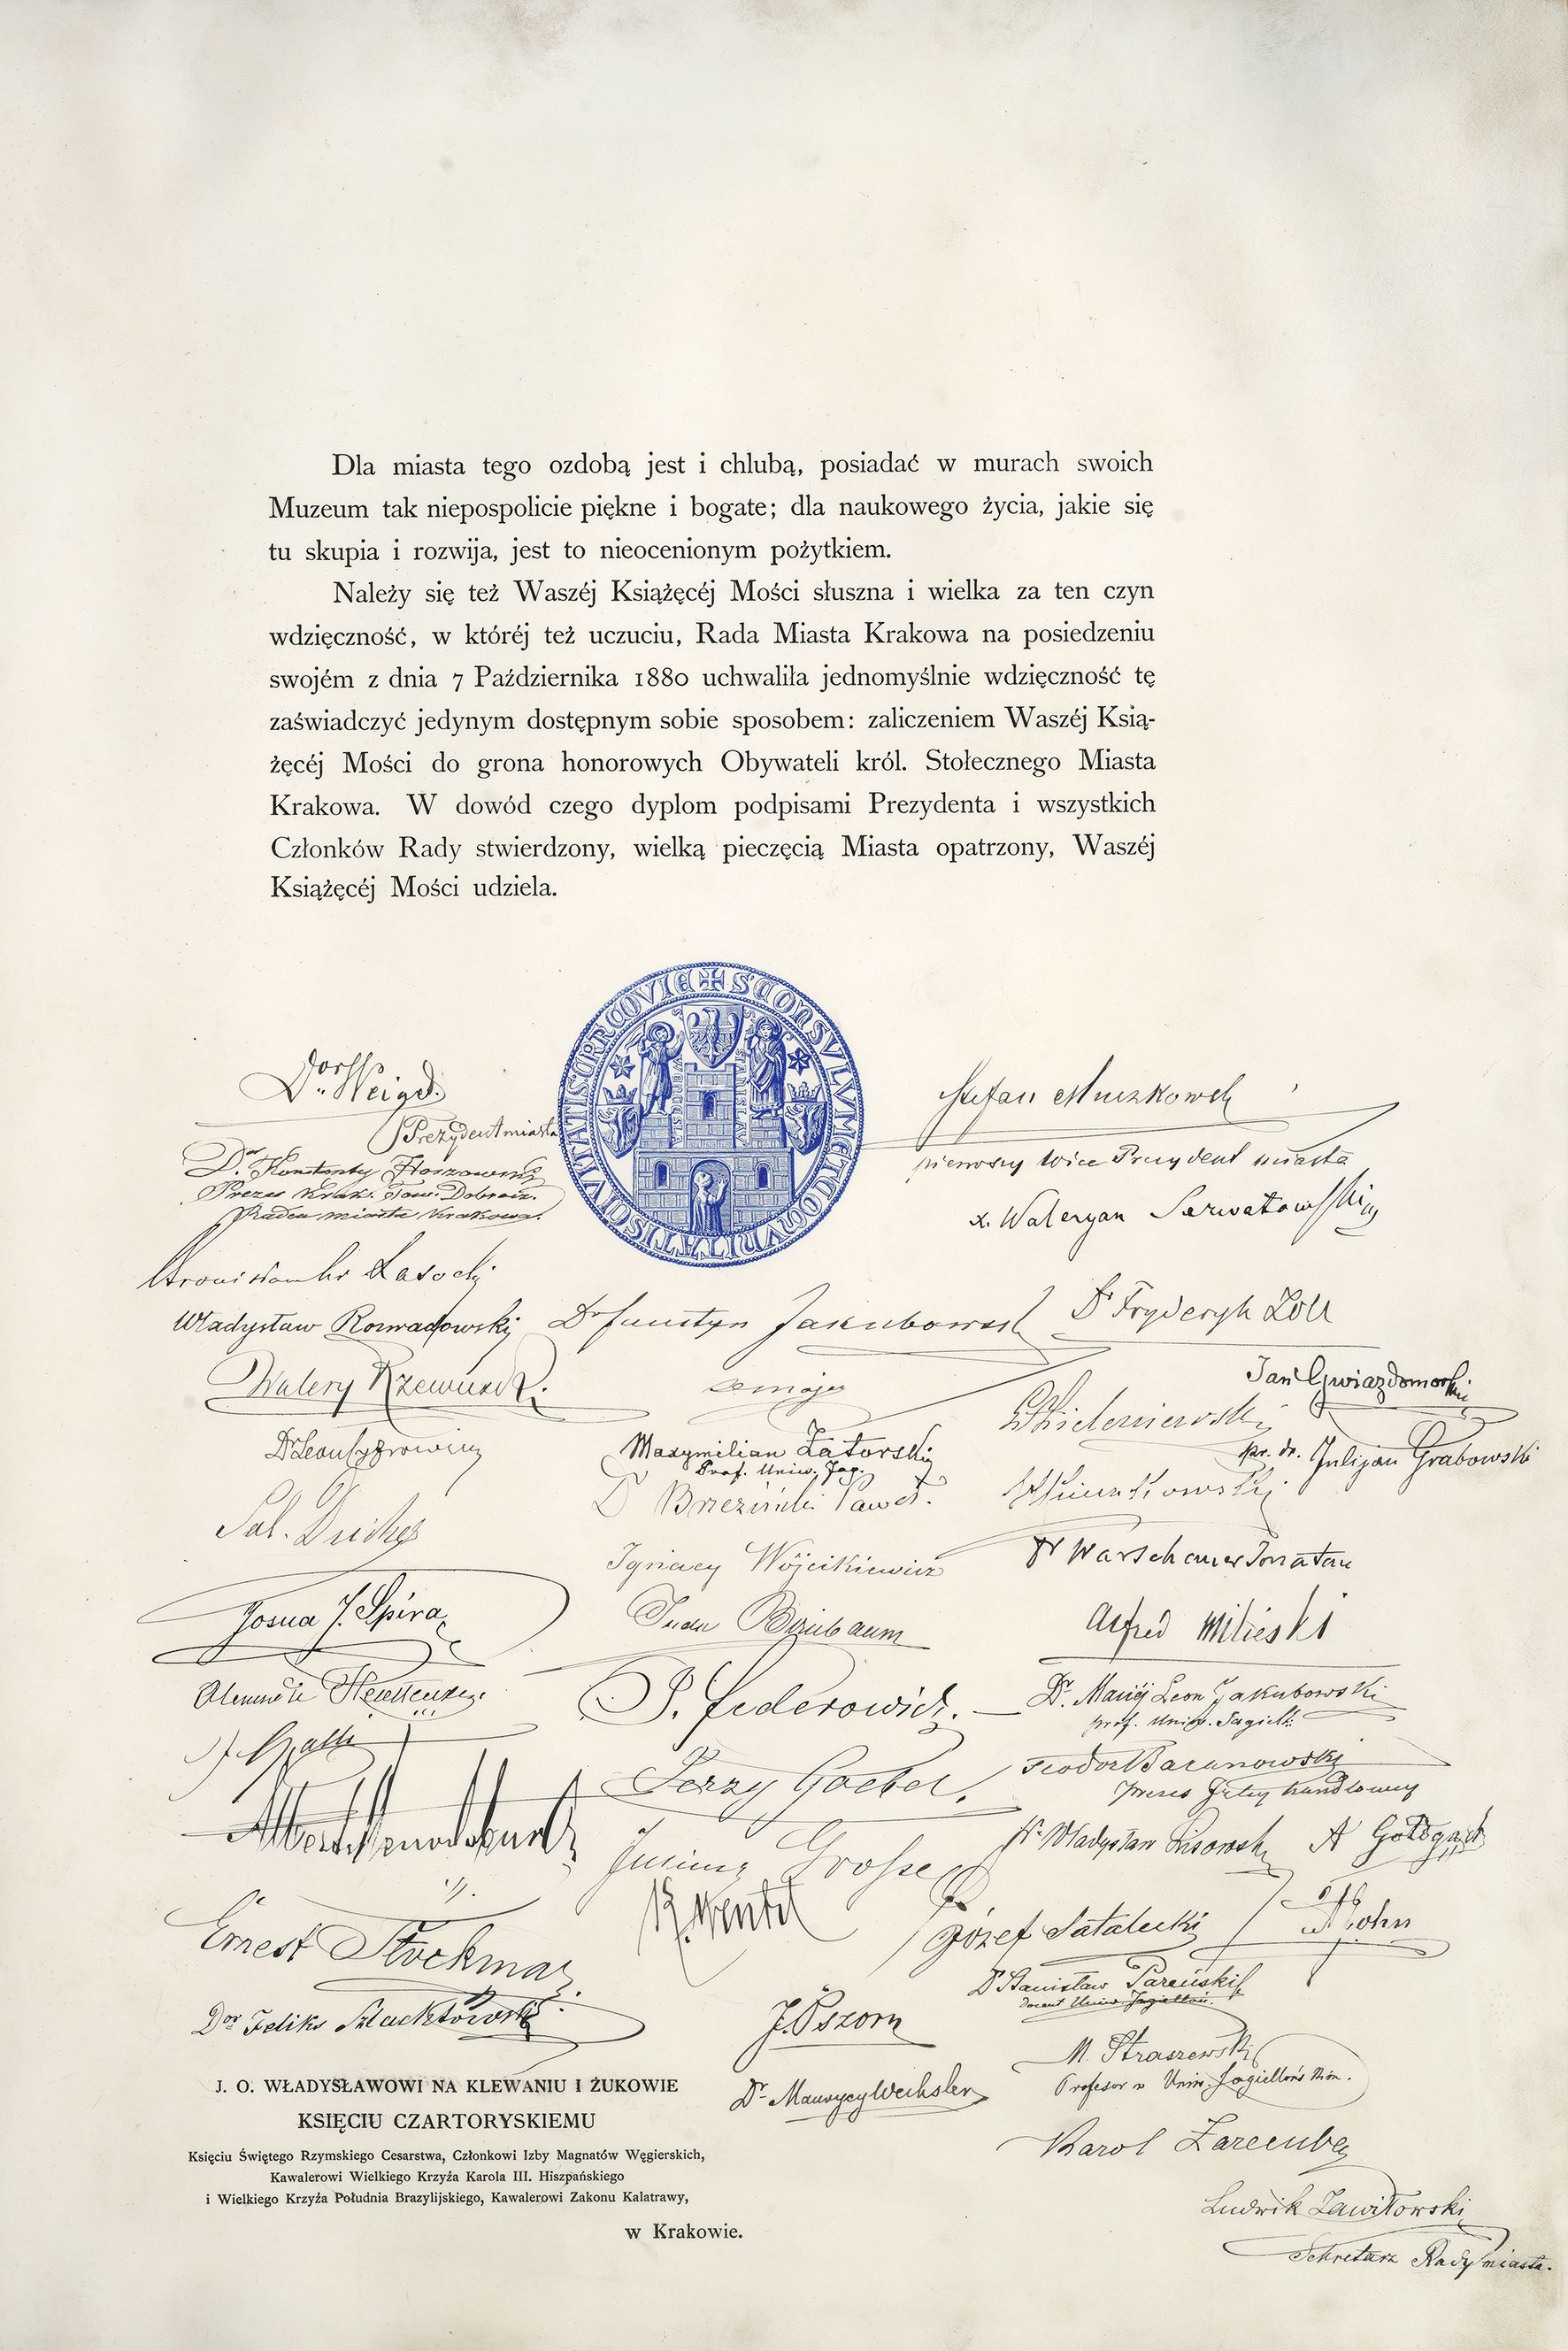 Dla miasta tego ozdobą jest i chlubą, posiadać w murach swoich
Muzeum tak niepospolicie piękne i bogate; dla naukowego życia, jakie się
tu skupia i rozwija, jest to nieocenionym pożytkiem.
Należy się też Waszéj Książęcéj Mości słuszna i wielka za ten czyn
wdzięczność, w któréj też uczuciu, Rada Miasta Krakowa na posiedzeniu
swojém z dnia 7 Października 1880 uchwaliła jednomyślnie wdzięczność tę
zaświadczyć jedynym dostępnym sobie sposobem: zaliczeniem Waszéj Ksią-
żęcéj Mości do grona honorowych Obywateli król. Stołecznego Miasta
Krakowa. W dowód czego dyplom podpisami Prezydenta i wszystkich
Członków Rady stwierdzony, wielką pieczęcią Miasta opatrzony, Waszéj
Książęcéj Mości udziela.
Dr. Weigel
Prezydent miasta
Stefan Muczkowski
pierwszy Wice Prezydent miasta
Dr. Konstanty Hoszowski
Prezes Krak. Tow. Dobrocz.
Radca miasta Krakowa.
x. Waleryan Serwatowski
Lasocki
Władysław Rozwadowski
Dr Faustyn Jakubowski
Dr Fryderyk Zoll
Walery Rzewuski
Jan Gwiazdomorski
Dr Leon Cyfrowicz
Maxymilian Zatorski
Prof. Uniw. Jag.
Julijan Grabowski
Dr Brzeziński Paweł.
Sal. Deiches
Ignacy Wójcikiewicz
Dr Warschauer Jonatan
Josua J. Spira
Juda Birnbaum
Alfred Milieski
P. Federowicz.
Dr. Maciej Leon Jakubowski
prof. Uniw. Jagiell.
Jerzy Goebel.
Teodor Baranowski
prezes Izby handlowej
Albert Mendelsburg
Juliusz Grosse
Władysław Lisowski
A Goldgart
K. Wentzl
Ernest Stockmar
Józef Satalecki
Dr Stanisław Pareński
Docent Uniw. Jagiellon.
Dor Feliks Szlachtowski
J. Pszorn
M. Straszewski
Profesor w Uniw. Jagiellońskim.
Dr. Maurycy Wechsler
Karol Zaremba
J. O. WŁADYSŁAWOWI NA KLEWANIU I ŻUKOWIE
KSIĘCIU CZARTORYSKIEMU
Księciu Świętego Rzymskiego Cesarstwa, Członkowi Izby Magnatów Węgierskich,
Kawalerowi Wielkiego Krzyża Karola III. Hiszpańskiego
i Wielkiego Krzyża Południa Brazylijskiego, Kawalerowi Zakonu Kalatrawy,
w Krakowie.
Ludwik Zawiłowski
Sekretarz Rady miasta.